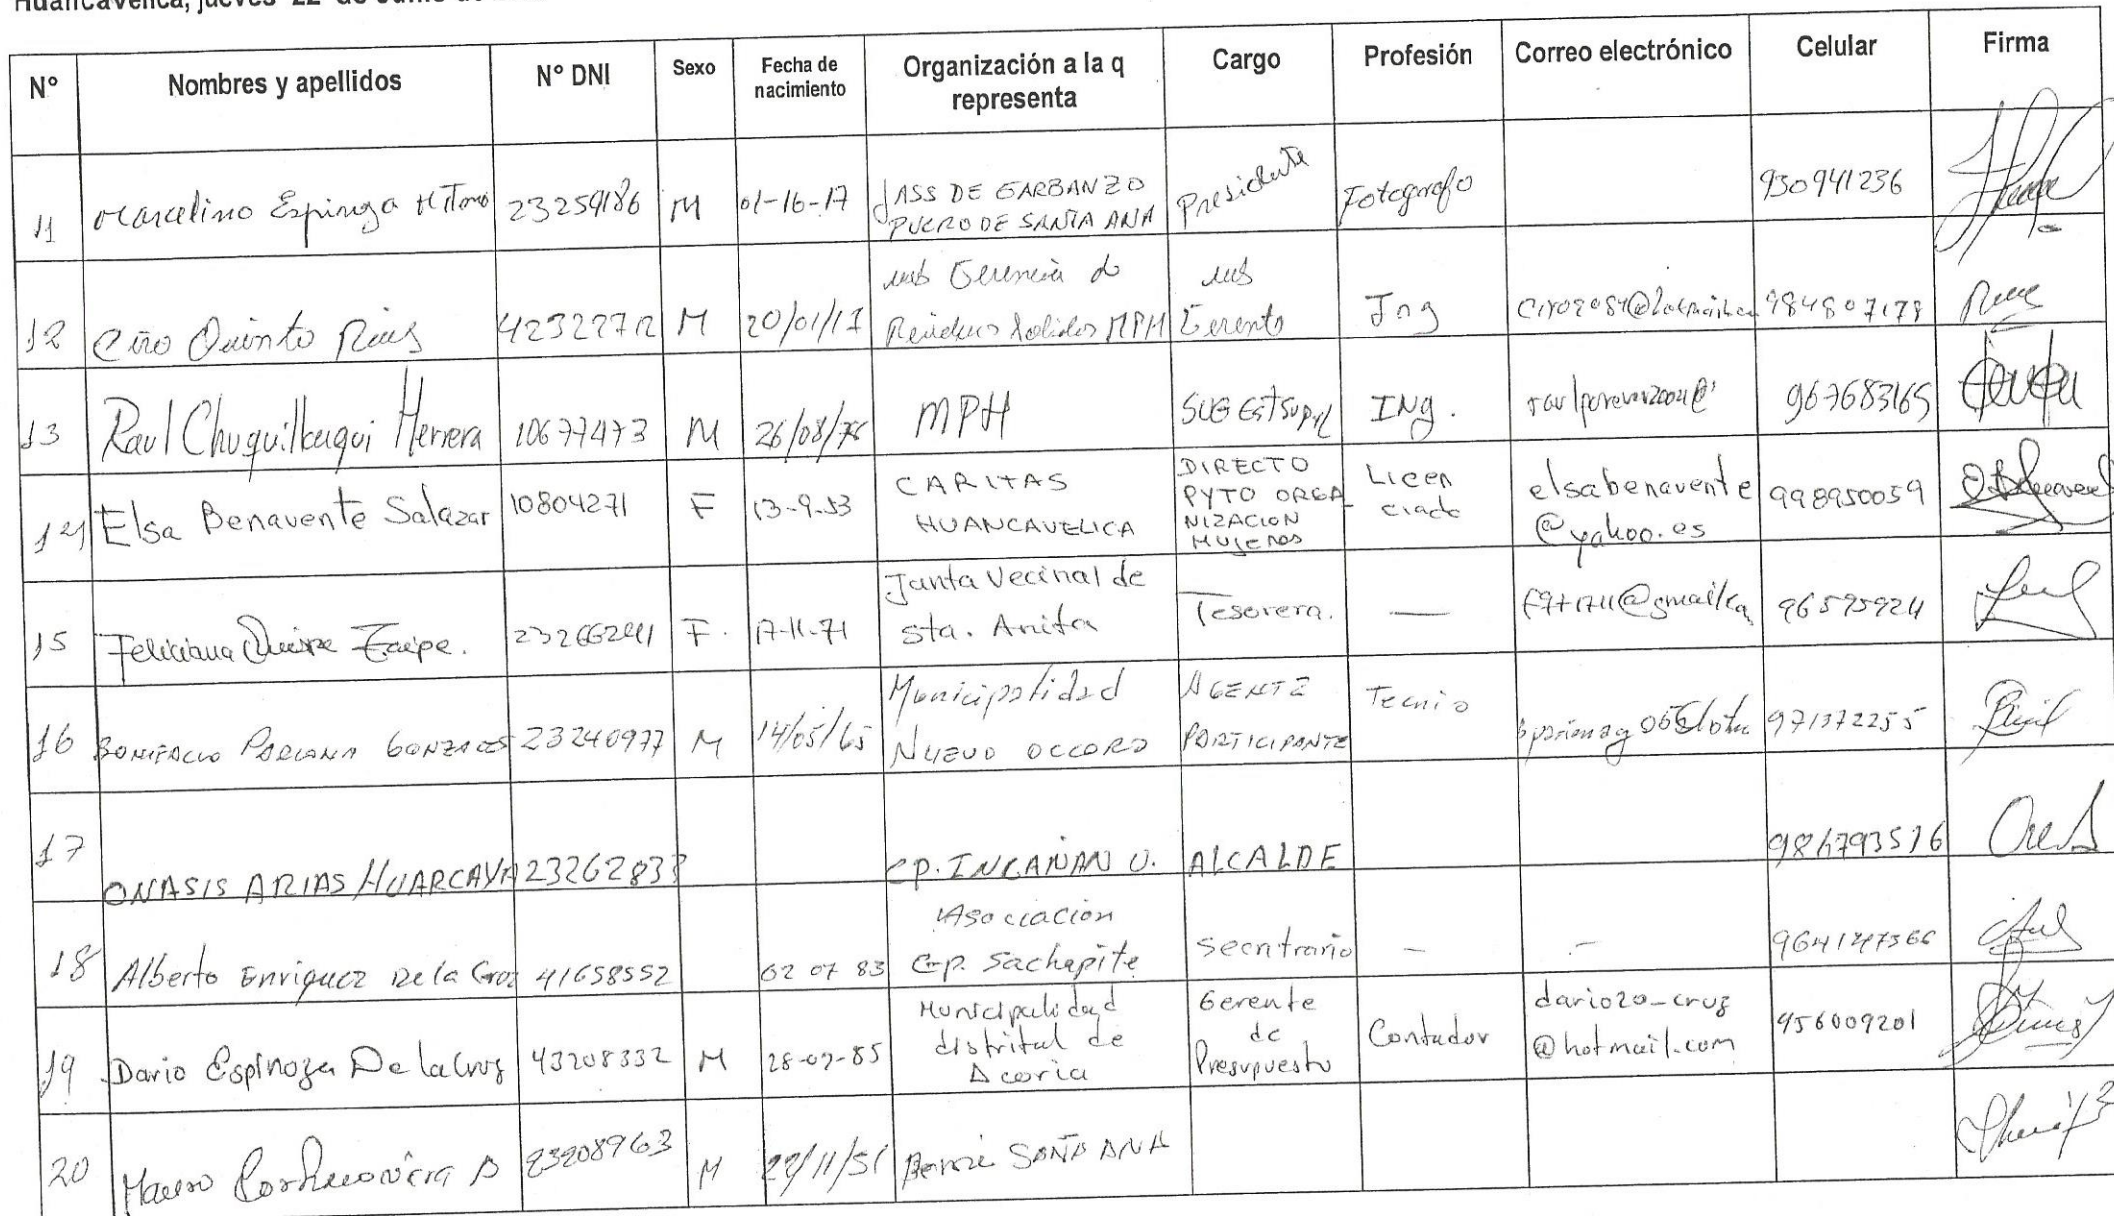 Huancavelica, jueves 22 de Junio de
N° Nombres y apellidos N° DNI Sexo Fecha de nacimiento Organización a la q representa Cargo Profesión Correo electrónico Celular Firma
11 Marcelino Espinoza 23259186 M 01-16-17 JASS DE GARBANZO PUCRO DE SANTA ANA Presidente Fotografo 930941236
12 Ciro Quinto 42322712 M 20/01/17 sub Gerencia de Residuos Solidos MPH sub Gerente Ing 984807178
13 Raul Chuquillanqui Herrera 10677473 M 26/08/76 MPH Ing. 967683165
14 Elsa Benavente Salazar 10804271 F 13-9-53 CARITAS HUANCAVELICA DIRECTO PYTO ORGANIZACION MUJERES Licenciado elsabenavente@yahoo.es 998950059
15 Feliciana Quispe Taipe. 23266241 F. 17-11-71 Junta Vecinal de Sta. Anita Tesorera. — 96595924
16 BONIFACIO PARIONA GONZALES 23240977 M 14/05/65 Municipalidad NUEVO OCCORO AGENTE PARTICIPANTE Tecnio 971372255
17 ONASIS ARIAS HUARCAYA 23262833 CP. INCAÑAN U. ALCALDE 986793516
18 Alberto Enriquez De la Cruz 41658552 02 07 83 Asociacion C.p. Sachapite Secntrario - - 964147366
19 Dario Espinoza De la Cruz 43208332 M 28-07-85 Municipalidad distrital de Acoria Gerente de Presupuesto Contador dario20_cruz@hotmail.com 956009201
20 Mauro 23208963 M 22/11/51 SANTA ANA